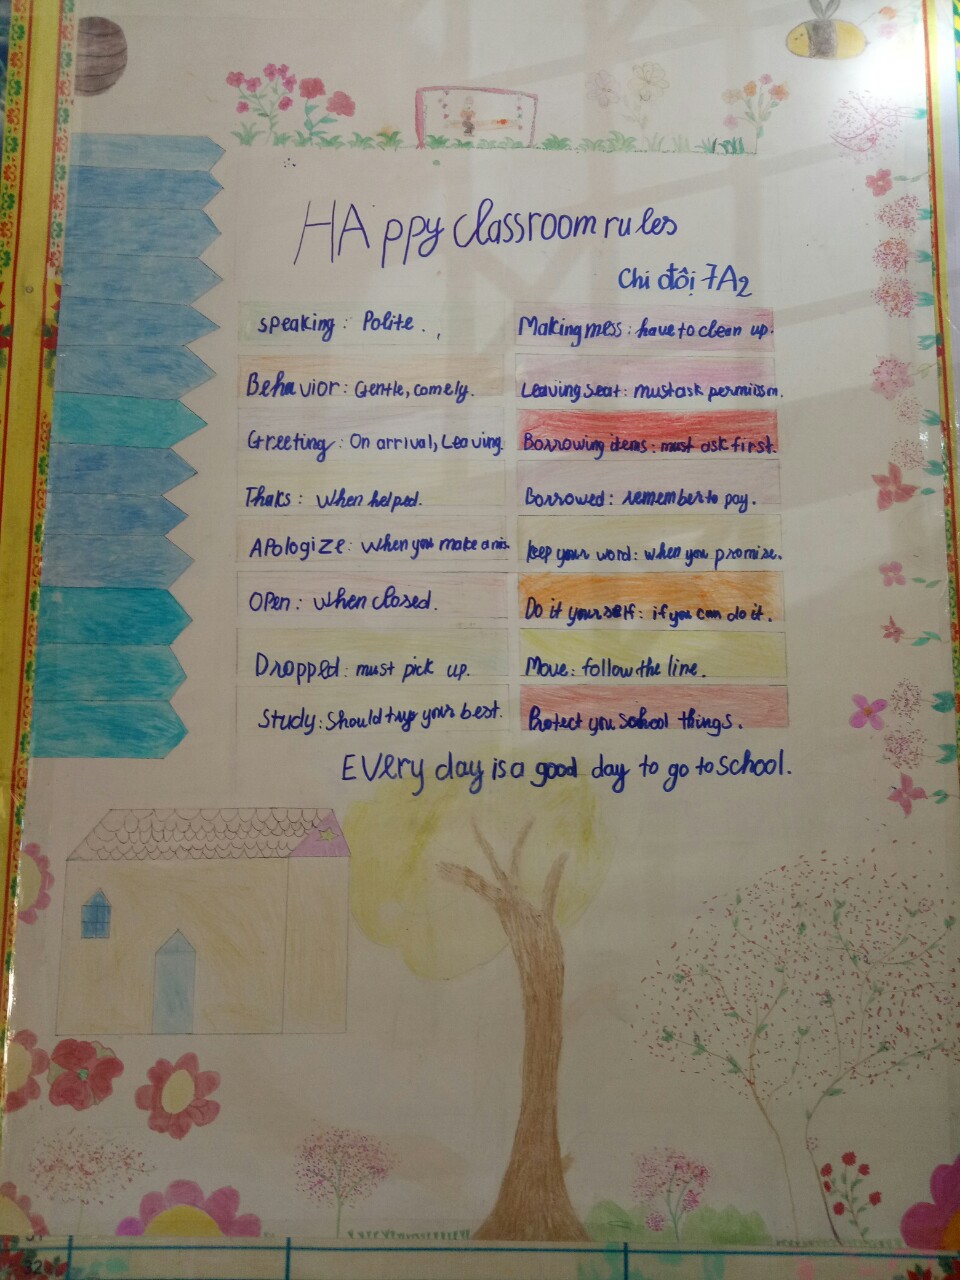 HAppy classroom rules
Chi đội 7A2
speaking: Polite.
Behavior: Gentle, comely.
Greeting: On arrival, Leaving.
Thaks: when helped.
Apologize: when you make a mis.
Open: when closed.
Dropped: must pick up.
Study: Should try your best.
Making mess: have to clean up.
Leaving seat: must ask permission.
Borrowing items: must ask first.
Borrowed: remember to pay.
keep your word: when you promise.
Do it yourself: if you can do it.
Move: follow the line.
Protect you school things.
Every day is a good day to go to school.